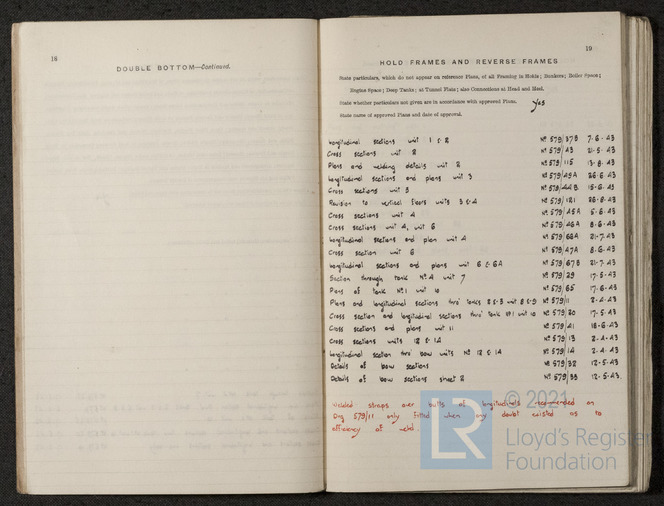 18
DOUBLE BOTTOM—Continued.
19
HOLD FRAMES AND REVERSE FRAMES
State particulars, which do not appear on reference Plans, of all Framing in Holds; Bunkers; Boiler Space;
Engine Space; Deep Tanks; at Tunnel Flats; also Connections at Head and Heel.
State whether particulars not given are in accordance with approved Plans. Yes
State name of approved Plans and date of approval.
Longitudinal sections unit 1 & 2 Nº 579/37B 7.6.43
Cross sections unit 2 Nº 579/43 21.5.43
Plans and welding details unit 2 Nº 579/115 13.8.43
Longitudinal sections and plans unit 3 Nº 579/49A 26.6.43
Cross sections unit 3 Nº 579/44B 15.6.43
Revision to vertical floors units 3 & 4 Nº 579/121 26.8.43
Cross sections unit 4 Nº 579/45A 5.6.43
Cross sections unit 4, unit 6 Nº 579/46A 8.6.43
Longitudinal sections and plan unit 4 Nº 579/66A 21.7.43
Cross section unit 6 Nº 579/47A 8.6.43
Longitudinal sections and plans unit 6 & 6A Nº 579/67B 21.7.43
Section through tank Nº 4 unit 7 Nº 579/29 17.5.43
Plans of tank Nº 1 unit 10 Nº 579/65 17.6.43
Plans and longitudinal sections thro' tanks 2 & 3 unit 8 & 9 Nº 579/11 2.4.43
Cross section and longitudinal sections thro' tank Nº 1 unit 10 Nº 579/20 17.5.43
Cross sections and plans unit 11 Nº 579/41 18.6.43
Cross sections units 12 & 14 Nº 579/13 2.4.43
Longitudinal section thro' bow units Nº 12 & 14 Nº 579/14 2.4.43
Details of bow sections Nº 579/32 12.5.43
Details of bow sections sheet 2 Nº 579/33 12.5.43.
Welded straps over butts of longitudinals recommended on
Drg 579/11 only fitted when any doubt existed as to
efficiency of weld.
© 2021
LR
Lloyd's Register
Foundation